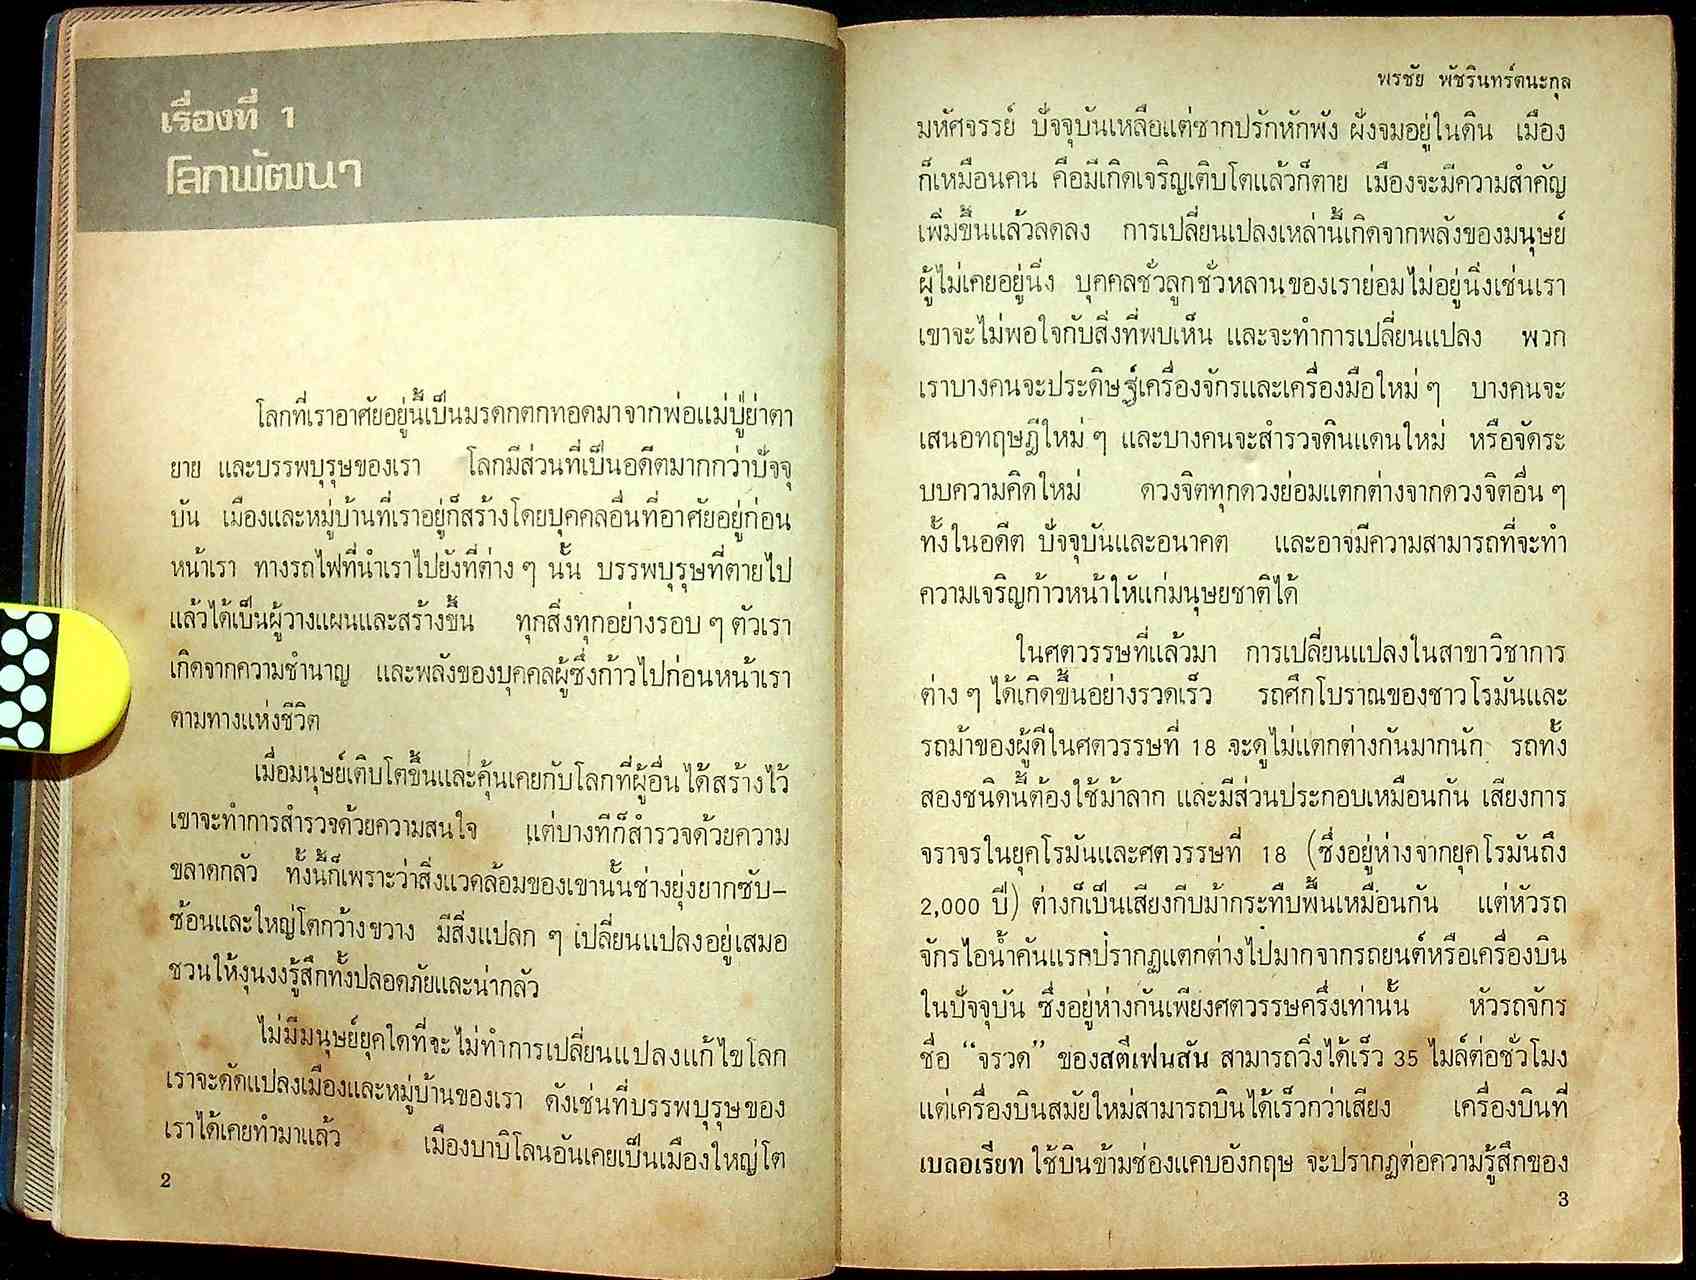 เรื่องที่ 1
โลกพัฒนา
โลกที่เราอาศัยอยู่นี้เป็นมรดกตกทอดมาจากพ่อแม่ปู่ย่าตา
ยาย และบรรพบุรุษของเรา โลกมีส่วนที่เป็นอดีตมากกว่าปัจจุ
บัน เมืองและหมู่บ้านที่เราอยู่ก็สร้างโดยบุคคลอื่นที่อาศัยอยู่ก่อน
หน้าเรา ทางรถไฟที่นำเราไปยังที่ต่าง ๆ นั้น บรรพบุรุษที่ตายไป
แล้วได้เป็นผู้วางแผนและสร้างขึ้น ทุกสิ่งทุกอย่างรอบ ๆ ตัวเรา
เกิดจากความชำนาญ และพลังของบุคคลผู้ซึ่งก้าวไปก่อนหน้าเรา
ตามทางแห่งชีวิต
เมื่อมนุษย์เติบโตขึ้นและคุ้นเคยกับโลกที่ผู้อื่นได้สร้างไว้
เขาจะทำการสำรวจด้วยความสนใจ แต่บางทีก็สำรวจด้วยความ
ขลาดกลัว ทั้งนี้ก็เพราะว่าสิ่งแวดล้อมของเขานั้นช่างยุ่งยากซับ-
ซ้อนและใหญ่โตกว้างขวาง มีสิ่งแปลก ๆ เปลี่ยนแปลงอยู่เสมอ
ชวนให้งุนงงรู้สึกทั้งปลอดภัยและน่ากลัว
ไม่มีมนุษย์ยุคใดที่จะไม่ทำการเปลี่ยนแปลงแก้ไขโลก
เราจะดัดแปลงเมืองและหมู่บ้านของเรา ดังเช่นที่บรรพบุรุษของ
เราได้เคยทำมาแล้ว เมืองบาบิโลนอันเคยเป็นเมืองใหญ่โต
2
พรชัย พัชรินทร์ตนะกุล
มหัศจรรย์ ปัจจุบันเหลือแต่ซากปรักหักพัง ฝั่งจมอยู่ในดิน เมือง
ก็เหมือนคน คือมีเกิดเจริญเติบโตแล้วก็ตาย เมืองจะมีความสำคัญ
เพิ่มขึ้นแล้วลดลง การเปลี่ยนเปลงเหล่านี้เกิดจากพลังของมนุษย์
ผู้ไม่เคยอยู่นิ่ง บุคคลชั่วลูกชั่วหลานของเราย่อมไม่อยู่นิ่งเช่นเรา
เขาจะไม่พอใจกับสิ่งที่พบเห็น และจะทำการเปลี่ยนแปลง พวก
เราบางคนจะประดิษฐ์เครื่องจักรและเครื่องมือใหม่ ๆ บางคนจะ
เสนอทฤษฎีใหม่ ๆ และบางคนจะสำรวจดินแดนใหม่ หรือจัดระ
บบความคิดใหม่ ดวงจิตทุกดวงย่อมแตกต่างจากดวงจิตอื่น ๆ
ทั้งในอดีต ปัจจุบันและอนาคต และอาจมีความสามารถที่จะทำ
ความเจริญก้าวหน้าให้แก่มนุษยชาติได้
ในศตวรรษที่แล้วมา การเปลี่ยนแปลงในสาขาวิชาการ
ต่าง ๆ ได้เกิดขึ้นอย่างรวดเร็ว รถศึกโบราณของชาวโรมันและ
รถม้าของผู้ดีในศตวรรษที่ 18 จะดูไม่แตกต่างกันมากนัก รถทั้ง
สองชนิดนี้ต้องใช้ม้าลาก และมีส่วนประกอบเหมือนกัน เสียงการ
จราจรในยุคโรมันและศตวรรษที่ 18 (ซึ่งอยู่ห่างจากยุคโรมันถึง
2,000 ปี) ต่างก็เป็นเสียงกีบม้ากระทืบพื้นเหมือนกัน แต่หัวรถ
จักรไอน้ำคันแรกปรากฏแตกต่างไปมากจากรถยนต์หรือเครื่องบิน
ในปัจจุบัน ซึ่งอยู่ห่างกันเพียงศตวรรษครึ่งเท่านั้น หัวรถจักร
ชื่อ “จรวด” ของสตีเฟนสัน สามารถวิ่งได้เร็ว 35 ไมล์ต่อชั่วโมง
แต่เครื่องบินสมัยใหม่สามารถบินได้เร็วกว่าเสียง เครื่องบินที่
เบลอเรียท ใช้บินข้ามช่องแคบอังกฤษ จะปรากฏต่อความรู้สึกของ
3